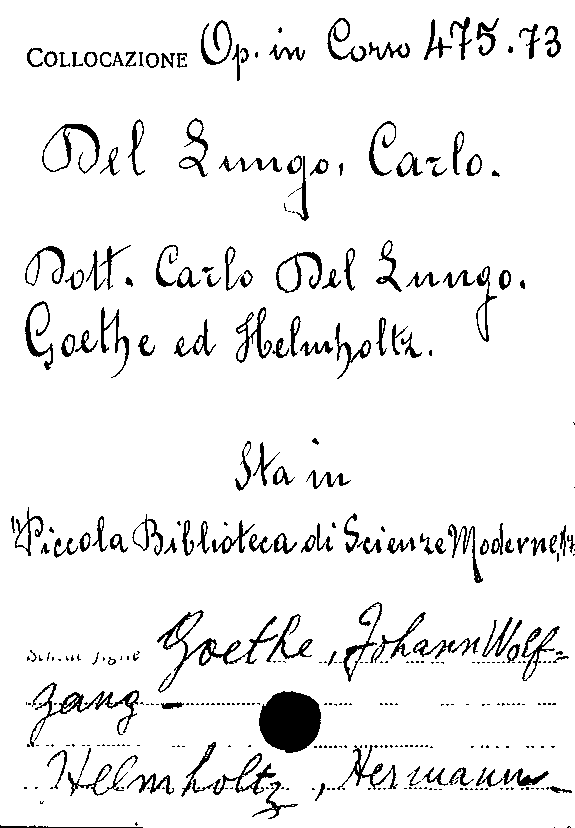 COLLOCAZIONE Op. in Corso 475.73
Del Lungo, Carlo.
Dott. Carlo Del Lungo.
Goethe ed Helmholtz.
Sta in
"Piccola Biblioteca di Scienze Moderne,,
Goethe, Johann Wolf=
gang -
Helmholtz, Hermann -